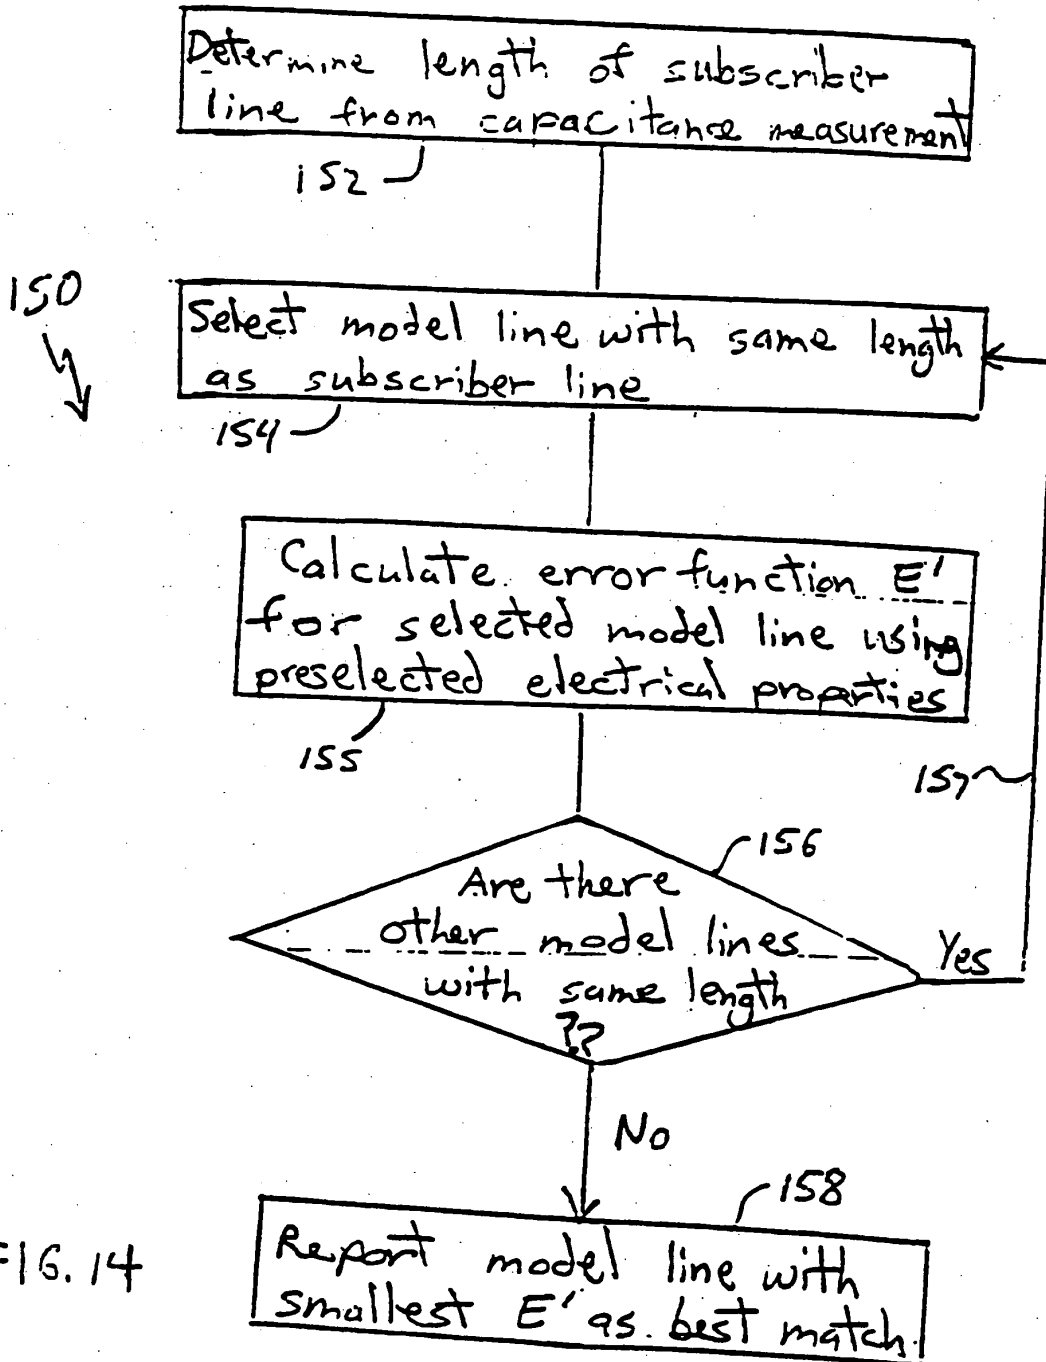 Determine length of subscriber
line from capacitance measurement
152
150
Select model line with same length
as subscriber line
154
Calculate error function E'
for selected model line using
preselected electrical properties
155
157
156
Are there
other model lines
with same length
??
Yes
No
158
Report model line with
smallest E' as best match.
FIG. 14